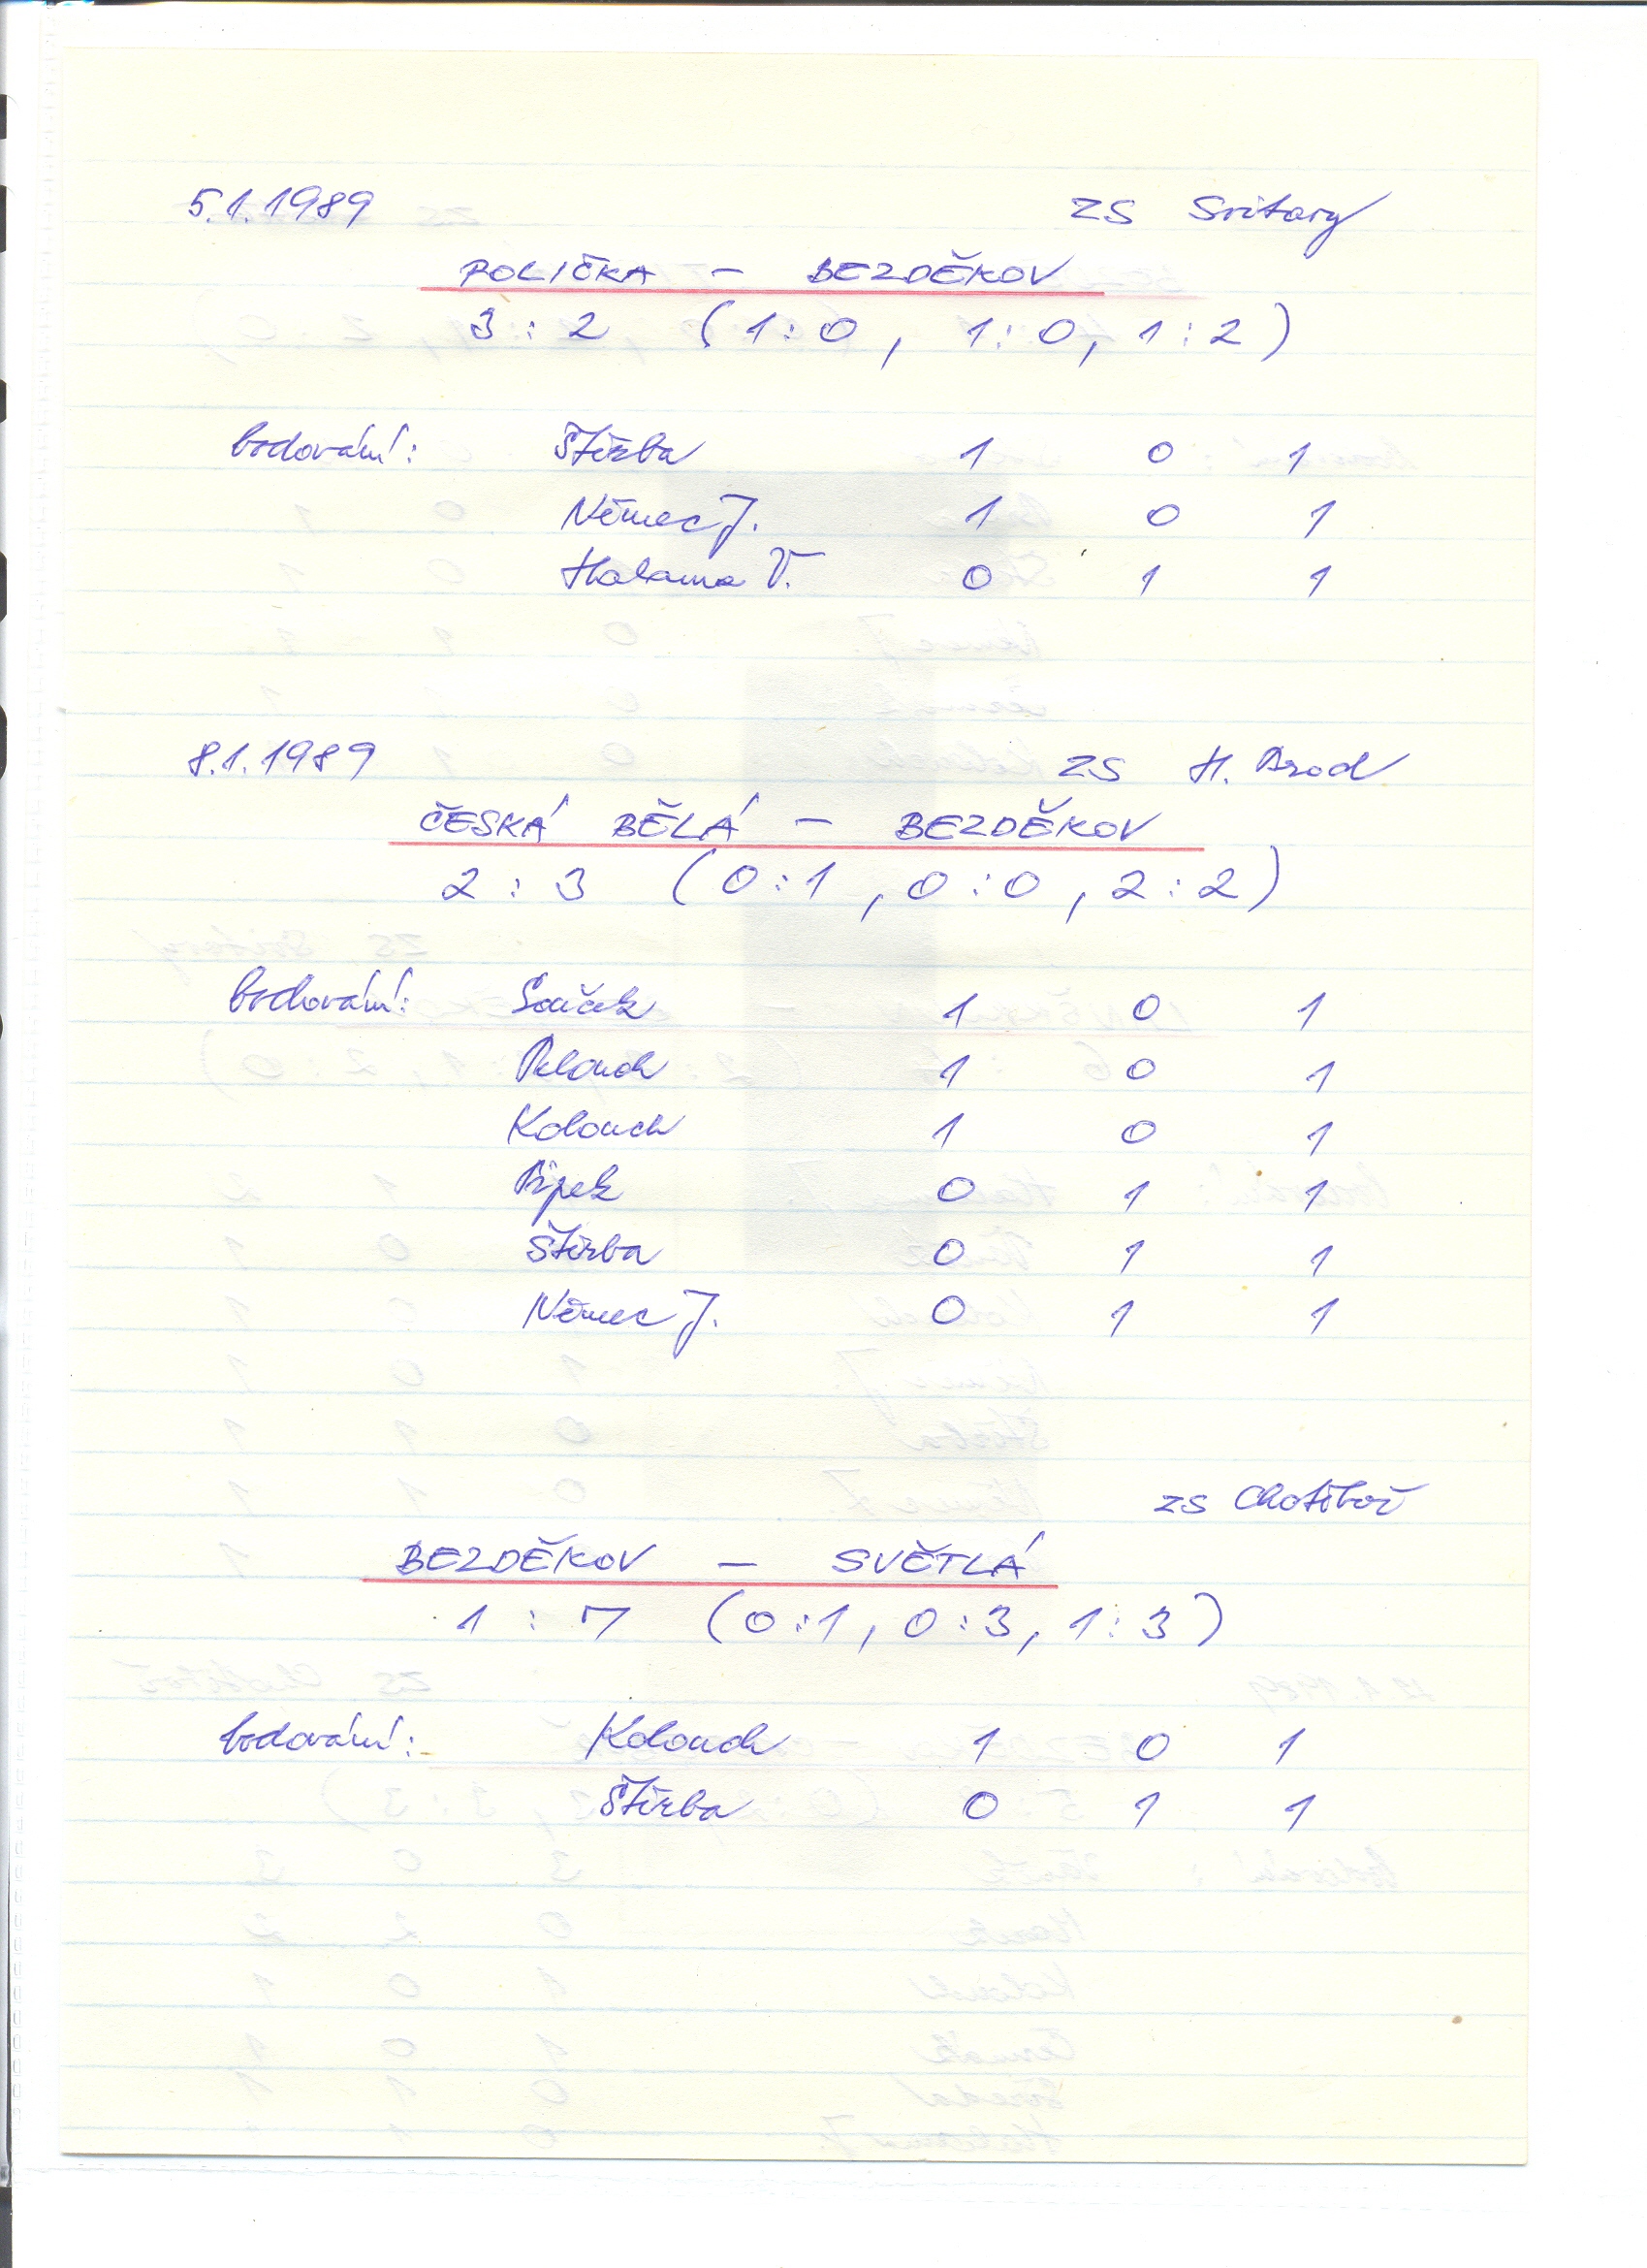 5.1.1989 ZS Svitavy
POLIČKA - BEZDĚKOV
3 : 2 (1:0, 1:0, 1:2)
bodování: Štěrba 1 0 1
Němec J. 1 0 1
Halama V. 0 1 1
8.1.1989 ZS H. Brod
ČESKÁ BĚLÁ - BEZDĚKOV
2 : 3 (0:1, 0:0, 2:2)
bodování: Souček 1 0 1
1 0 1
Kolouch 1 0 1
0 1 1
Štěrba 0 1 1
Němec J. 0 1 1
ZS Chotěboř
BEZDĚKOV - SVĚTLÁ
1 : 7 (0:1, 0:3, 1:3)
bodování: Kolouch 1 0 1
Štěrba 0 1 1